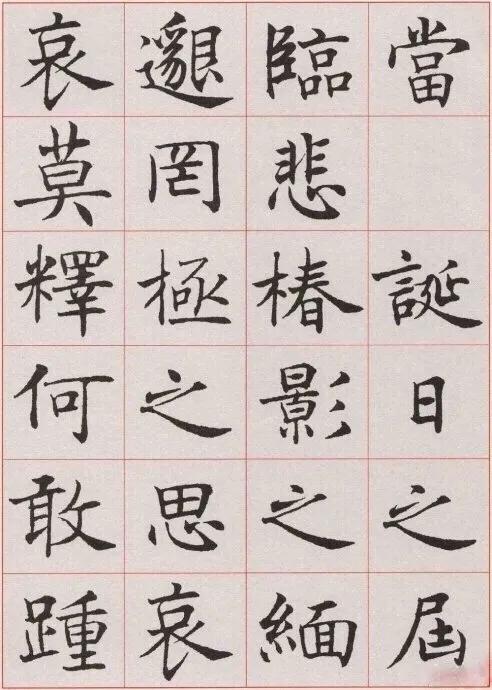 當　誕日之屆
臨悲椿影之緬
邈罔極之思哀
哀莫釋何敢踵